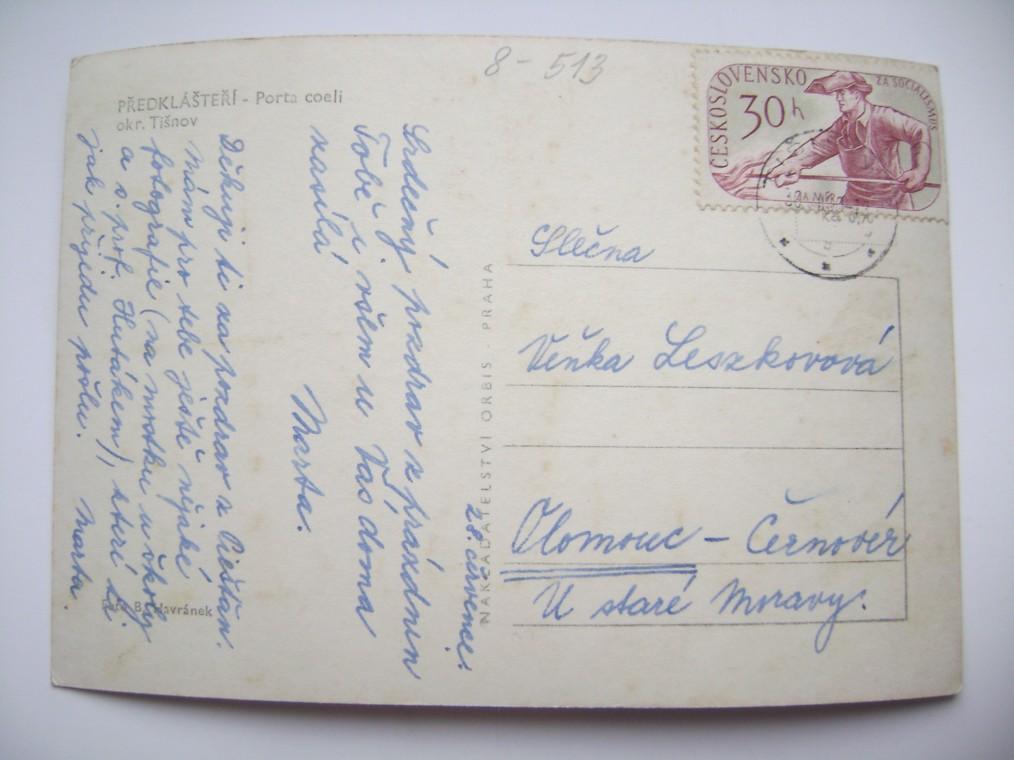 8 - 513
PŘEDKLÁŠTEŘÍ - Porta coeli
okr. Tišnov
ČESKOSLOVENSKO
30 h
ZA SOCIALISMUS
ZA MÍR
28. červenec.
Srdečný pozdrav z prázdnin
Tobě i všem u Vás doma
zasílá
Marta.
Děkuji ti za pozdrav z Piešťan.
Mám pro tebe ještě nějaké
fotografie (na mostku u školy
a s. prof. Hutákem), které ti
jak přijedu pošlu.
Marta.
Foto B. Havránek
NAKLADATELSTVÍ ORBIS - PRAHA
Slečna
Věňka Leszkovová
Olomouc - Černovír
U staré Moravy.